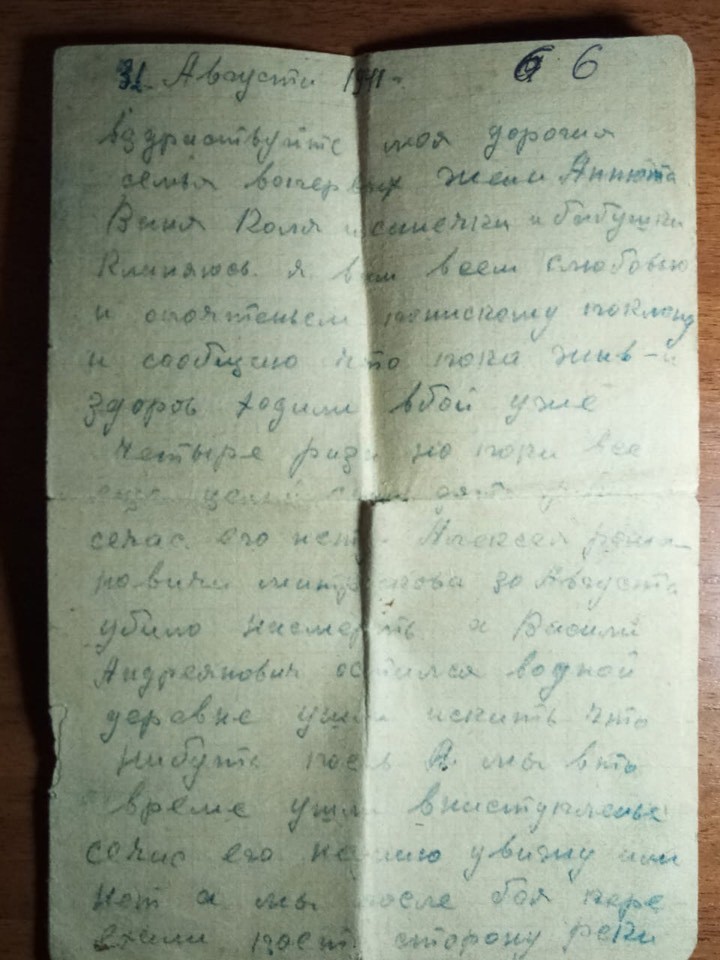 31 Августа 1941 г 6 6
вздраствуйте моя дорогия
семья вопервых жена Аннюта
Ваня Коля и санечка и бабушка
Кланяюсь я вам всем слюбовью
и поклону
и сообщаю что пока жив-и
здоров ходили вбой уже
четыре раза но пока все
еще целы
сечас его нет Алексея
30 Августа
убило насмерть а Василий
Андреянович остался водной
деревне ушол искать что
нибуть поесть А мы вто
время ушли внаступленье
сечас его незнаю увижу или
нет а мы после боя пере
ехали поест сторону реки